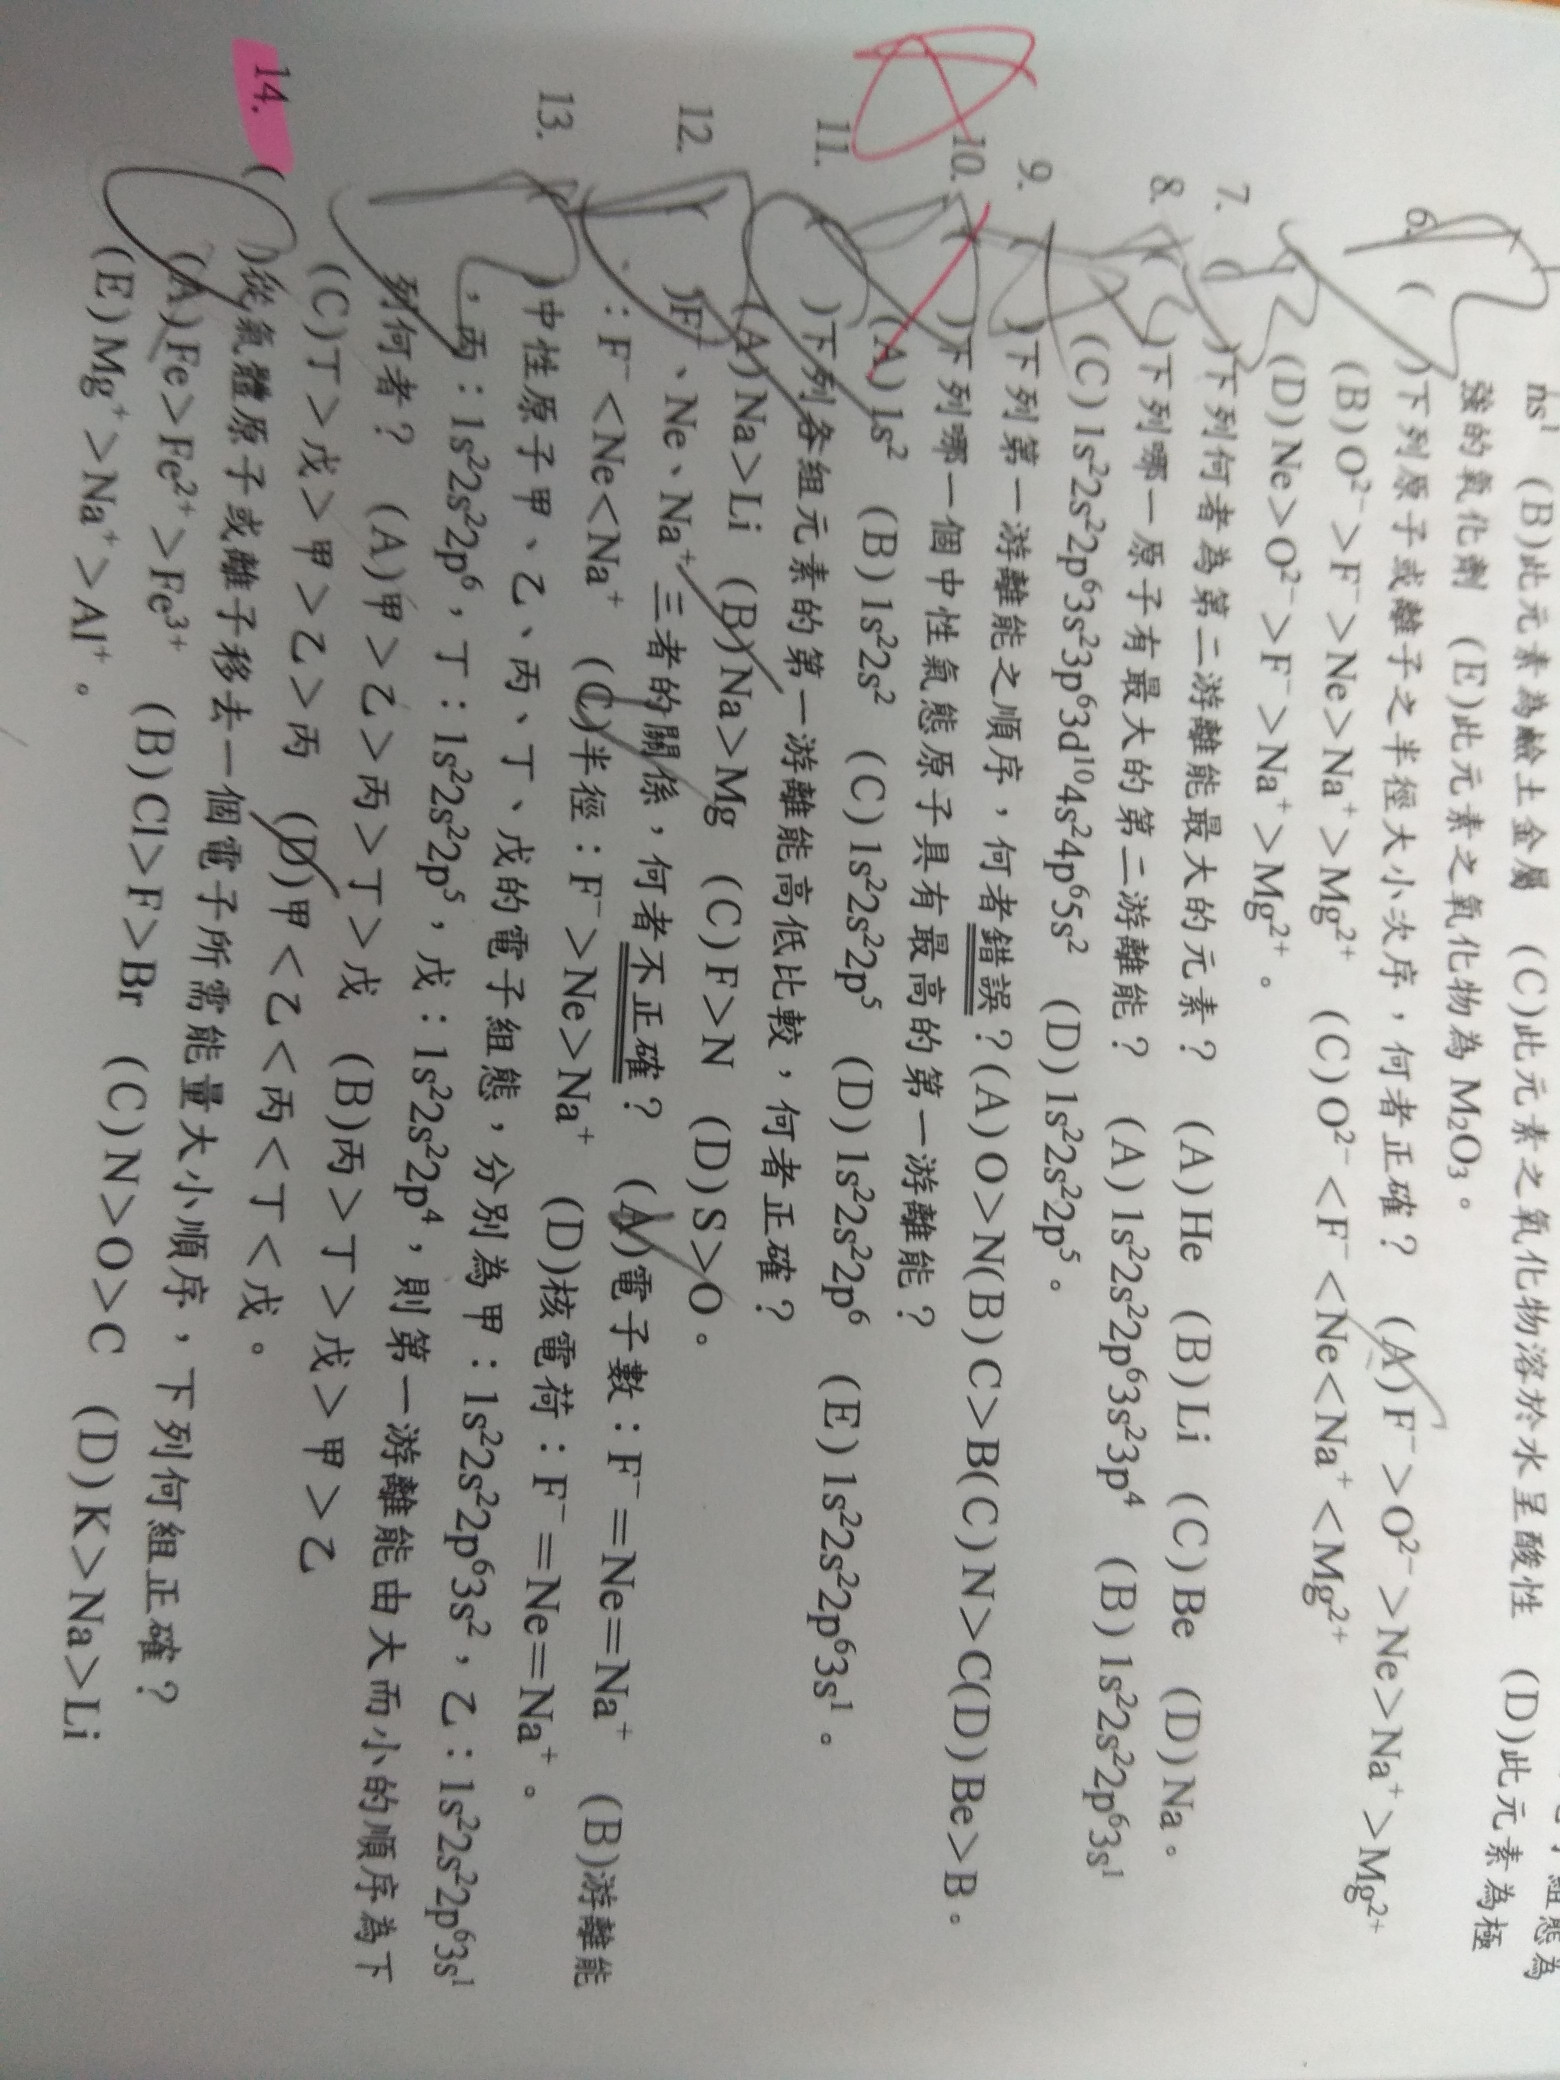 ns¹ (B)此元素為鹼土金屬 (C)此元素之氧化物溶於水呈酸性 (D)此元素為極
強的氧化劑 (E)此元素之氧化物為 M₂O₃。
6. ( )下列原子或離子之半徑大小次序，何者正確？ (A)F⁻>O²⁻>Ne>Na⁺>Mg²⁺
(B)O²⁻>F⁻>Ne>Na⁺>Mg²⁺ (C)O²⁻<F⁻<Ne<Na⁺<Mg²⁺
(D)Ne>O²⁻>F⁻>Na⁺>Mg²⁺。
7. ( )下列何者為第二游離能最大的元素？ (A)He (B)Li (C)Be (D)Na。
8. ( )下列哪一原子有最大的第二游離能？ (A)1s²2s²2p⁶3s²3p⁴ (B)1s²2s²2p⁶3s¹
(C)1s²2s²2p⁶3s²3p⁶3d¹⁰4s²4p⁶5s² (D)1s²2s²2p⁵。
9. ( )下列第一游離能之順序，何者錯誤？(A)O>N(B)C>B(C)N>C(D)Be>B。
10. ( )下列哪一個中性氣態原子具有最高的第一游離能？
(A)1s² (B)1s²2s² (C)1s²2s²2p⁵ (D)1s²2s²2p⁶ (E)1s²2s²2p⁶3s¹。
11. ( )下列各組元素的第一游離能高低比較，何者正確？
(A)Na>Li (B)Na>Mg (C)F>N (D)S>O。
12. ( )F⁻、Ne、Na⁺三者的關係，何者不正確？ (A)電子數：F⁻=Ne=Na⁺ (B)游離能
：F⁻<Ne<Na⁺ (C)半徑：F⁻>Ne>Na⁺ (D)核電荷：F⁻=Ne=Na⁺。
13. ( )中性原子甲、乙、丙、丁、戊的電子組態，分別為甲：1s²2s²2p⁶3s²，乙：1s²2s²2p⁶3s¹
，丙：1s²2s²2p⁶，丁：1s²2s²2p⁵，戊：1s²2s²2p⁴，則第一游離能由大而小的順序為下
列何者？ (A)甲>乙>丙>丁>戊 (B)丙>丁>戊>甲>乙
(C)丁>戊>甲>乙>丙 (D)甲<乙<丙<丁<戊。
14. ( )從氣體原子或離子移去一個電子所需能量大小順序，下列何組正確？
(A)Fe>Fe²⁺>Fe³⁺ (B)Cl>F>Br (C)N>O>C (D)K>Na>Li
(E)Mg⁺>Na⁺>Al⁺。